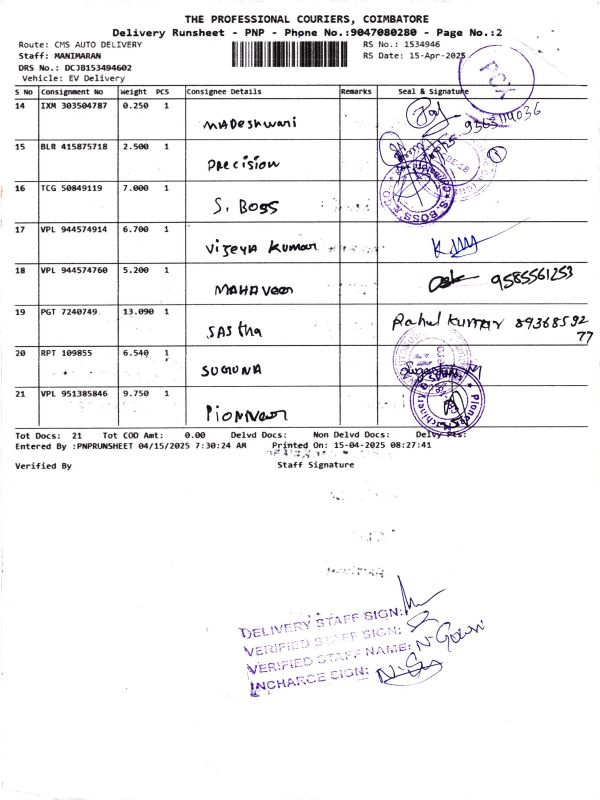 THE PROFESSIONAL COURIERS, COIMBATORE
Delivery Runsheet - PNP - Phone No.:9047080280 - Page No.:2
Route: CMS AUTO DELIVERY RS No.: 1534946
Staff: MANIMARAN RS Date: 15-Apr-2025
DRS No.: DCJB153494602
Vehicle: EV Delivery
PCX
S No Consignment No Weight PCS Consignee Details Remarks Seal & Signature
14 IXM 303504787 0.250 1 MADeshwari
15 BLR 415875718 2.500 1 Precision
16 TCG 50849119 7.000 1 S. Boss S. BOSS & CO
17 VPL 944574914 6.700 1 Vijeya Kumar
18 VPL 944574760 5.200 1 MAHAVeer 9585561253
19 PGT 7240749 13.090 1 SAStha Rahul Kumar 89368592
77
20 RPT 109855 6.540 1 SUGUNA
21 VPL 951385846 9.750 1 PIONNeer
Tot Docs: 21 Tot COD Amt: 0.00 Delvd Docs: Non Delvd Docs: Delvy Pts:
Entered By :PNPRUNSHEET 04/15/2025 7:30:24 AM Printed On: 15-04-2025 08:27:41
Verified By Staff Signature
DELIVERY STAFF SIGN:
VERIFIED STAFF SIGN:
VERIFIED STAFF NAME: N. Gowri
INCHARGE SIGN: